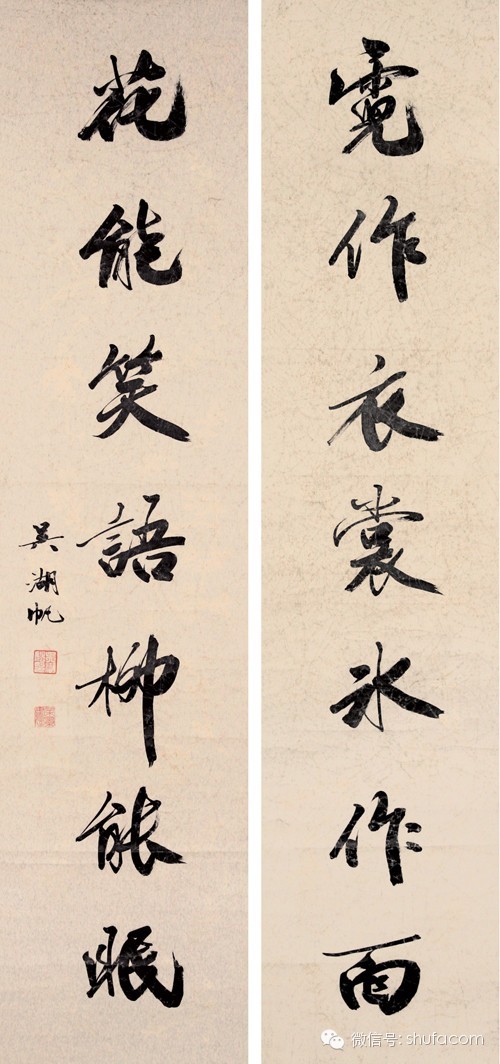 霓作衣裳冰作面
花能笑語柳能眠
吳湖帆
微信号: shufacom